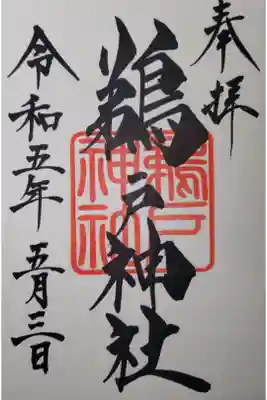 奉拝
鵜戸神社
鵜戸神社
令和五年五月三日